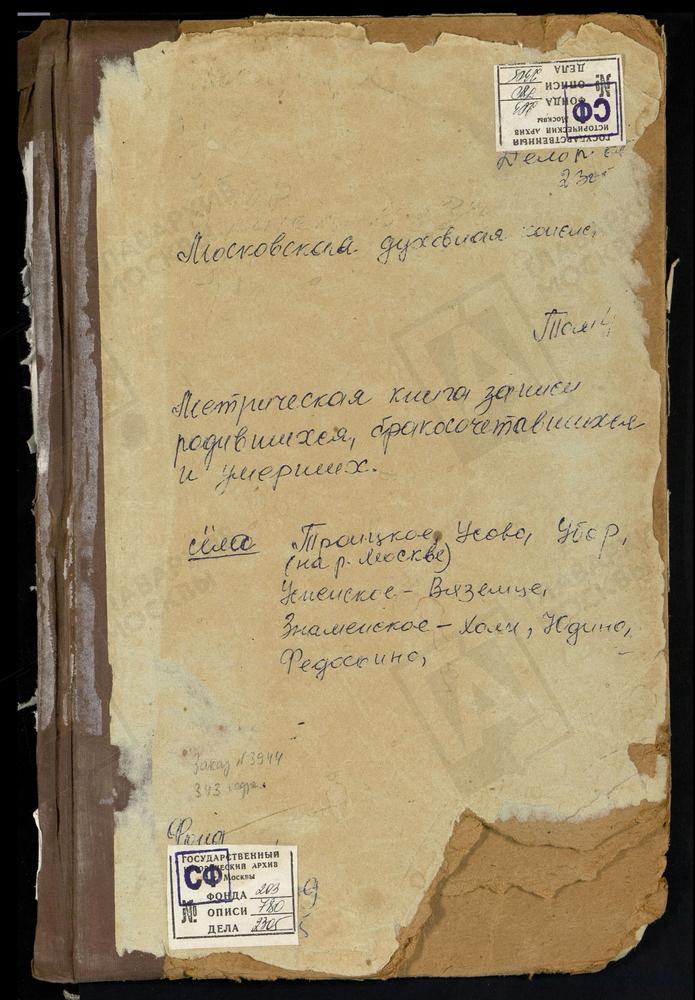 ГОСУДАРСТВЕННЫЙ
ИСТОРИЧЕСКИЙ АРХИВ
Москвы
СФ
№ ФОНДА 203
ОПИСИ 780
ДЕЛА
Дело №
Московская духовная
Метрическая книга записи
родившихся, бракосочетавшихся
и умерших.
сёла Троицкое, Усово, Убор,
(на р. Москве)
Успенское – Вяземце,
Знаменское – Холм, Юдино,
Федоскино,
Заказ № 3944
343 кадра.
Фонд
ГОСУДАРСТВЕННЫЙ
ИСТОРИЧЕСКИЙ АРХИВ
Москвы
СФ
№ ФОНДА 203
ОПИСИ 780
ДЕЛА 2305